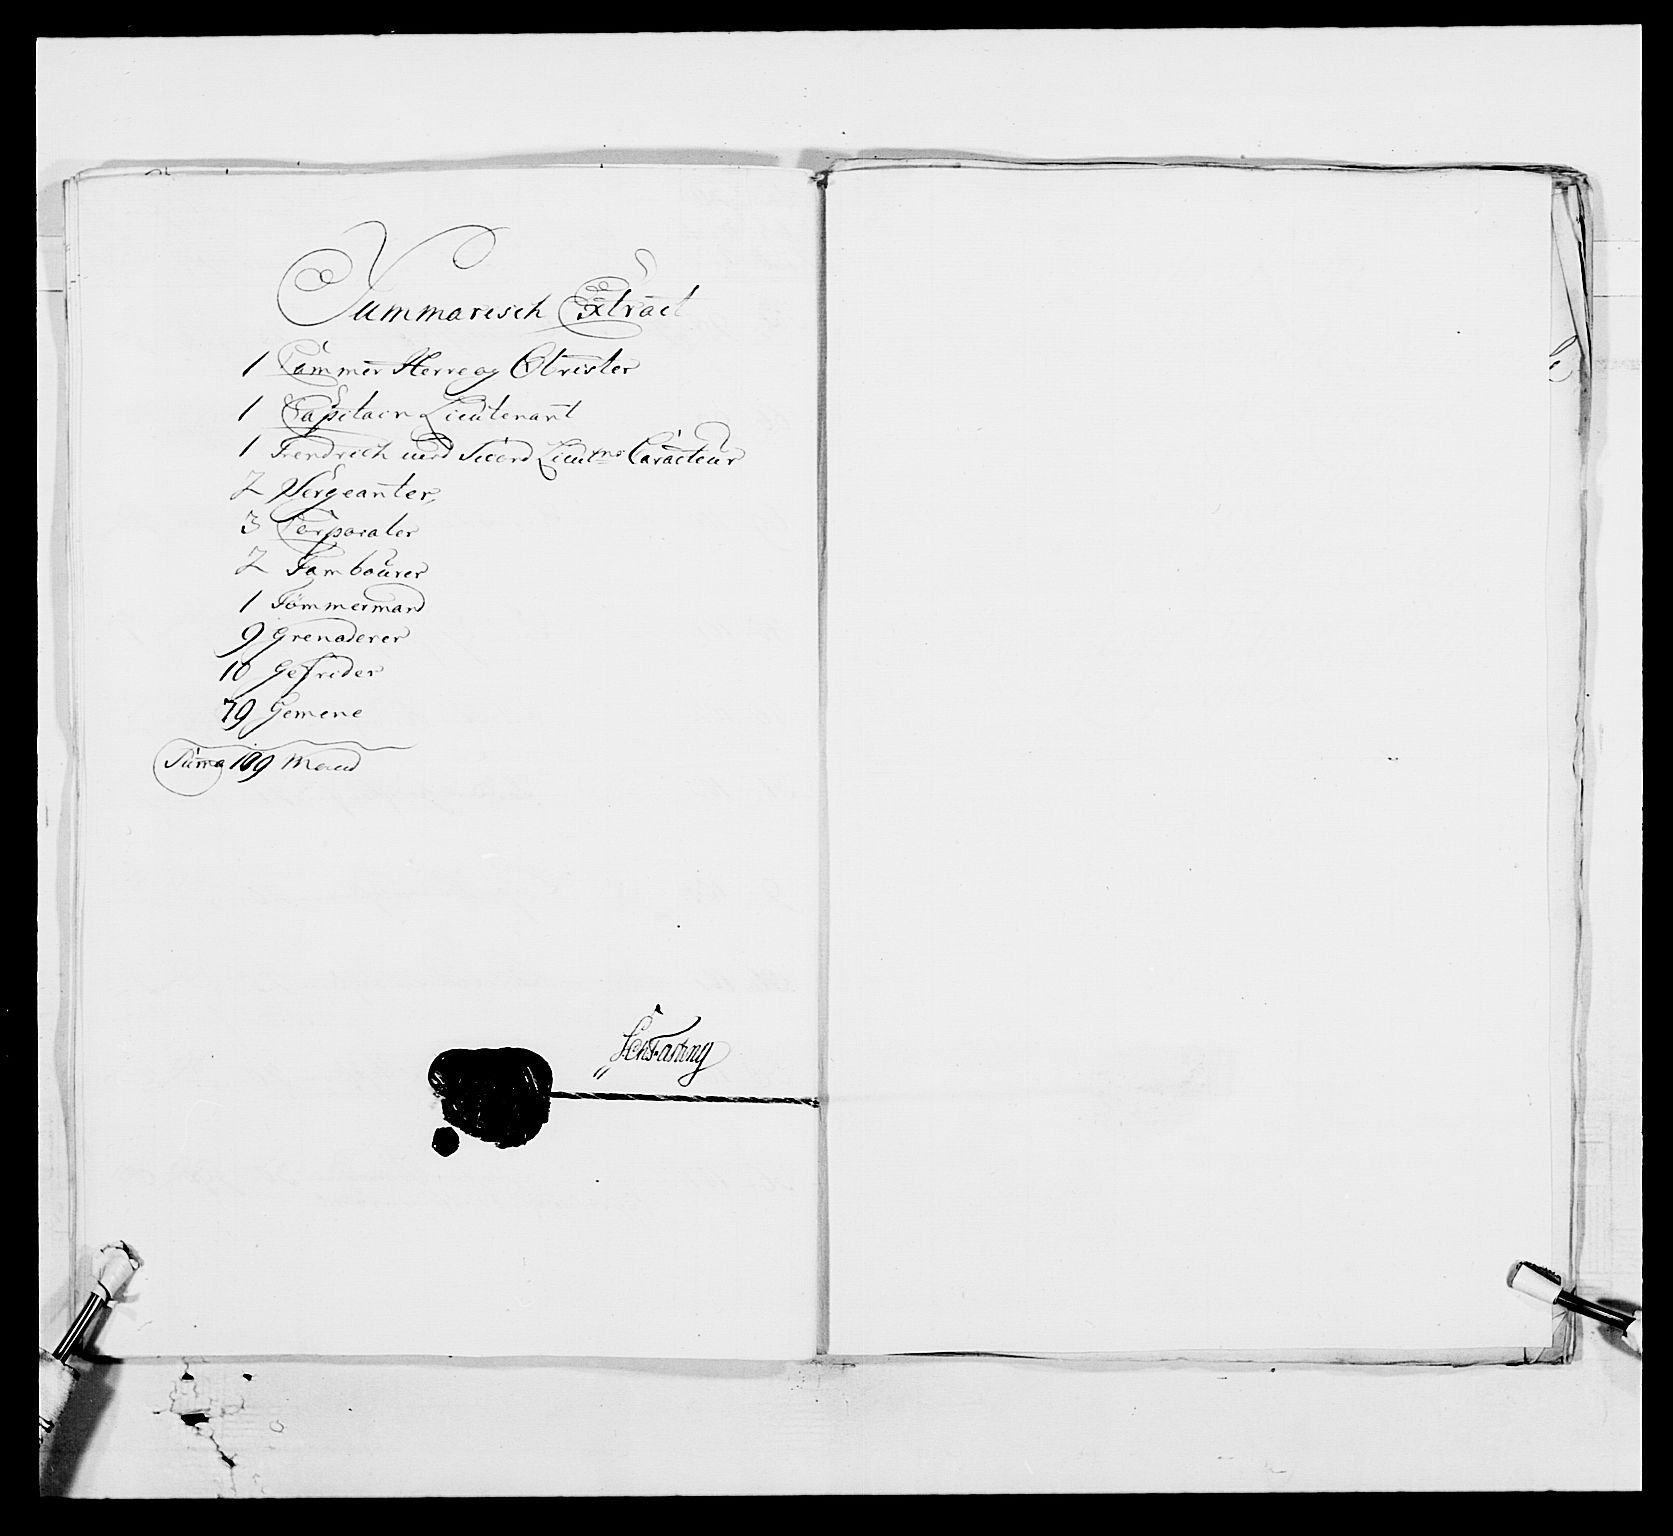 Summarisch Extract
1 Cammer Herre og Obrister
1 Capitain Lieutenant
1 Fendrich med Second Lieutns Caracteur
2 Sergeanter
3 Corporaler
2 Tambourer
1 Tömmermand
9 Grenaderer
10 Gefrider
79 Gemene
Suma 109 Mand